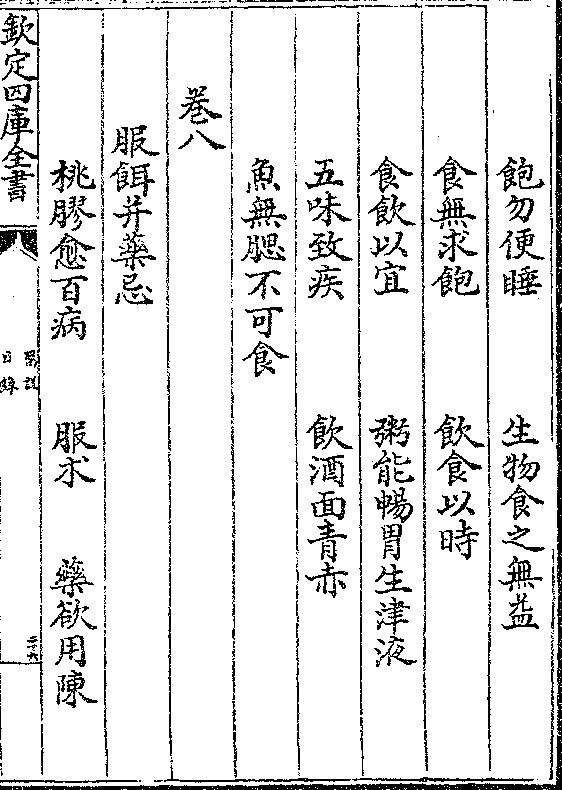 飽勿便睡 生物食之無益
食無求飽 飲食以時
食飲以宜 粥能暢胃生津液
五味致疾 飲酒面青赤
魚無腮不可食
卷八
服餌并藥忌
桃膠愈百病 服朮 藥欲用陳
欽定四庫全書
醫說
目錄
二十六